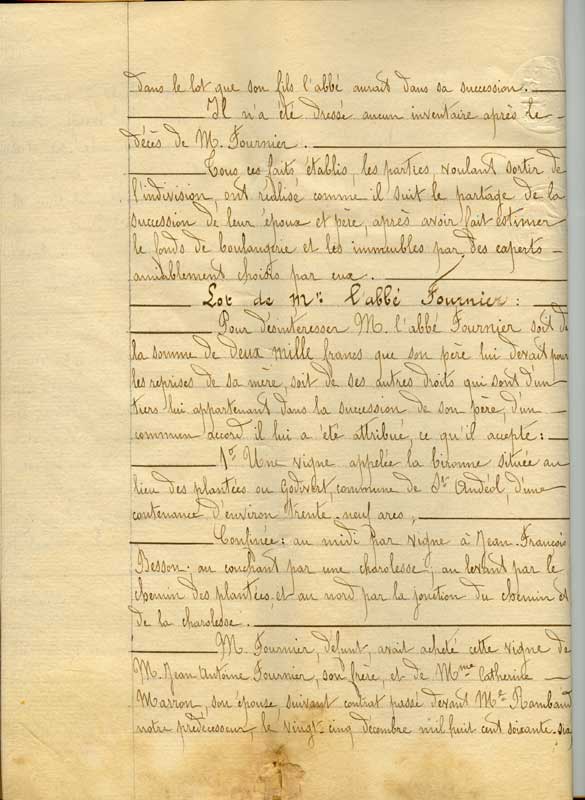 dans le lot que son fils l'abbé aurait dans sa succession.
Il n'a été dressé aucun inventaire après le
décès de M. Fournier.
Tous ces faits établis, les parties, voulant sortir de
l'indivision, ont réalisé comme il suit le partage de la
succession de leur époux et père, après avoir fait estimer
le fonds de boulangerie et les immeubles par des experts
amiablement choisis par eux.
Lot de Mr l'abbé Fournier :
Pour désintéresser M. l'abbé Fournier soit de
la somme de deux mille francs que son père lui devait pour
les reprises de sa mère, soit de ses autres droits qui sont d'un
tiers lui appartenant dans la succession de son père, d'un
commun accord il lui a été attribué, ce qu'il accepte :
1° Une vigne appelée la bironne située au
lieu des plantées ou Godivert, commune de St Andéol, d'une
contenance d'environ trente-neuf ares,
Confinée : au midi par vigne à Jean-François
Besson; au couchant par une charolesse; au levant par le
chemin des plantées, et au nord par la jonction du chemin et
de la charolesse.
M. Fournier, défunt, avait acheté cette vigne de
M. Jean Antoine Fournier, son frère, et de Mme Catherine
Marron, son épouse suivant contrat passé devant Me Rambaud
notre prédécesseur, le vingt-cinq décembre mil huit cent soixante-six